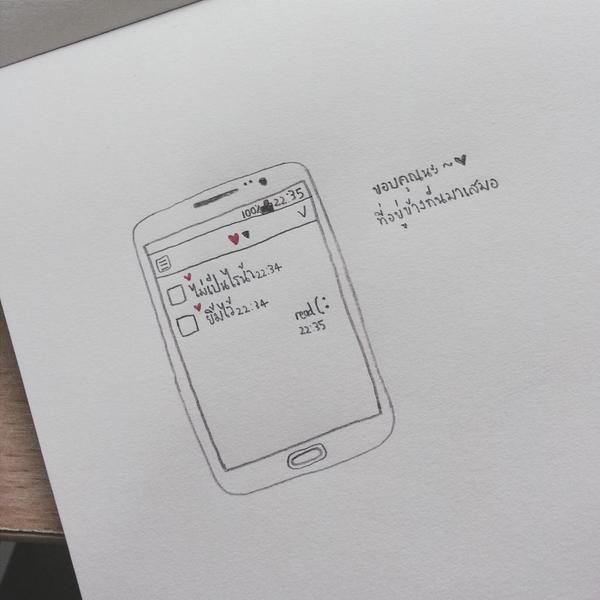 100% 22:35
V
ไม่เป็นไรน้า 22:34
ยิ้มไว้ 22:34
read (:
22:35
ขอบคุณนะ ~ ♥
ที่อยู่ข้างกันมาเสมอ